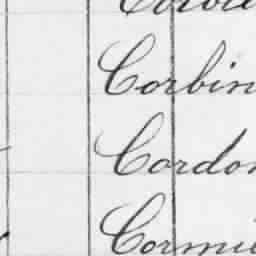 Corbin
Cordon
Cormi